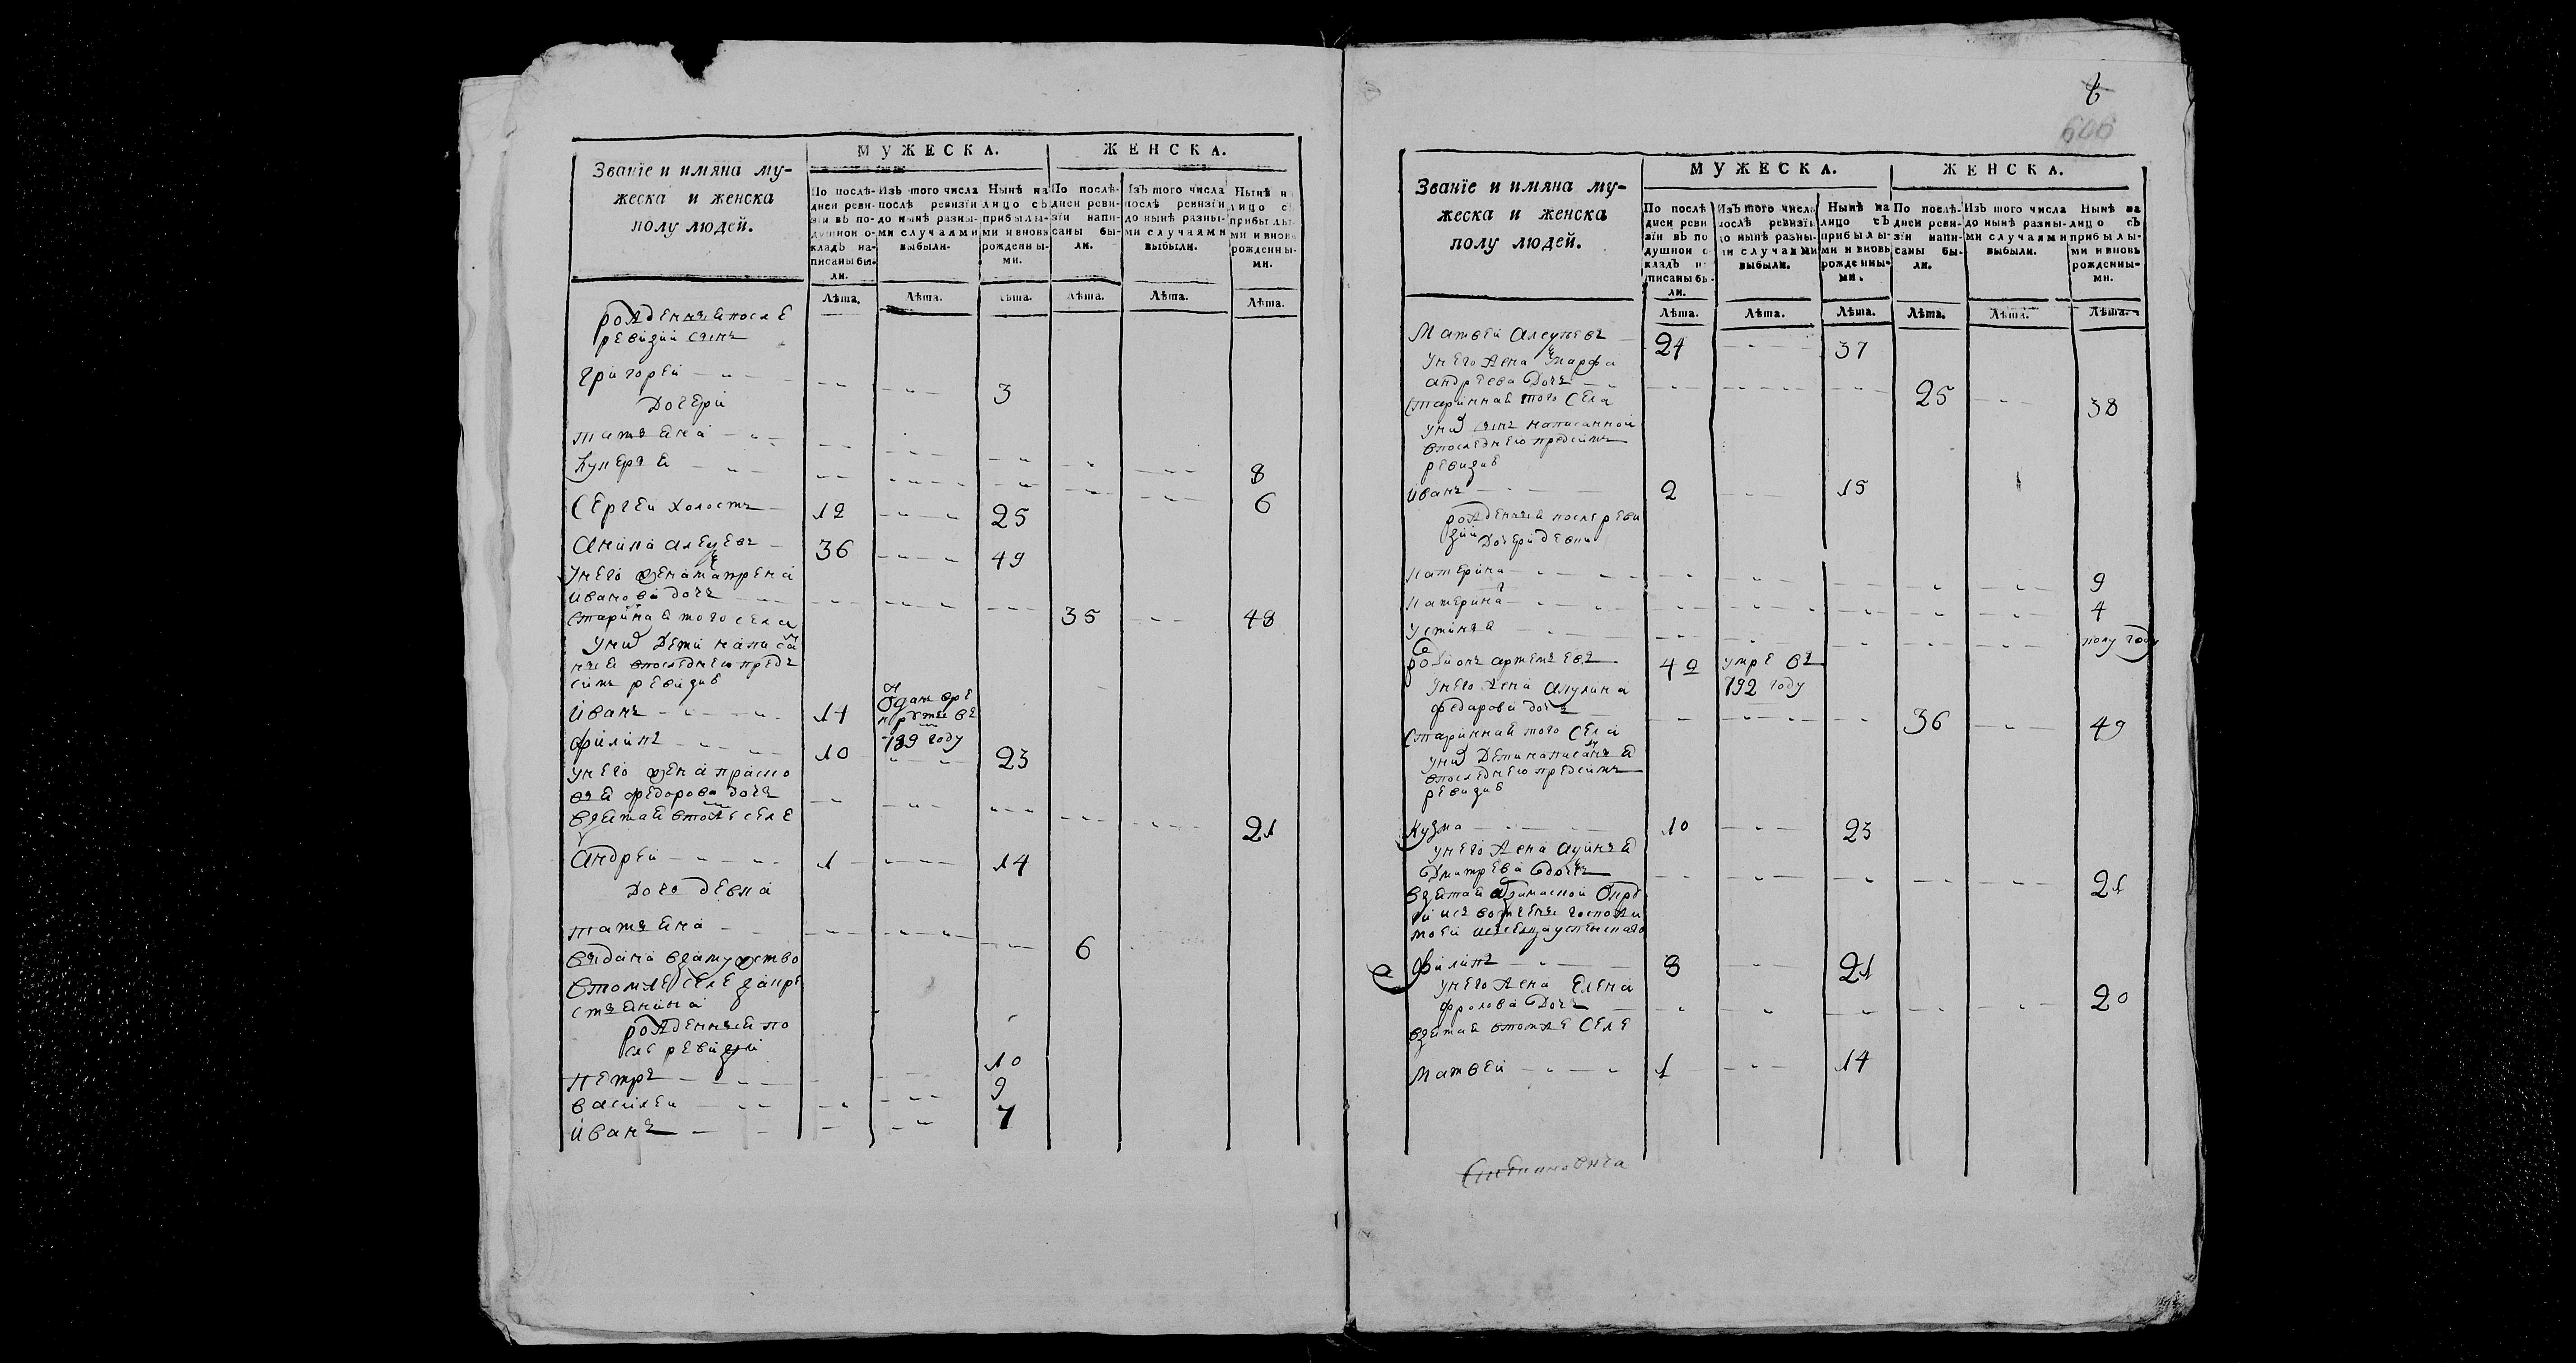 Званїе и имяна му-
жеска и женска
полу людей.
МУЖЕСКА.
ЖЕНСКА.
По послѣ-
дней реви-
зїи въ по-
душном о-
кладѣ на-
писаны бы-
ли.
Изъ того числа
послѣ ревизїи
до нынѣ разны-
ми случаями
выбыли.
Нынѣ на
лицо съ
прибылы-
ми и вновь
рожденны-
ми.
По послѣ-
дней реви-
зїи напи-
саны бы-
ли.
Изъ того числа
послѣ ревизїи
до нынѣ разны-
ми случаями
выбыли.
Нынѣ на
лицо съ
прибылы-
ми и вновь
рожденны-
ми.
Лѣта. Лѣта. Лѣта. Лѣта. Лѣта. Лѣта.
рожденныя после
ревизии сынъ
григореи 3
дочери
татьяна 8
лукеръя 6
Сергеи холостъ 12 25
36 49
у него жена матрена
иванова дочь 35 48
старинная того села
у них дети написан
ныя в последнею пред
сим ревизию
иванъ 14 отдан в ре
круты въ
789 году
филипъ 10 23
у него жена праско
вья федорова дочь 21
взятая в томже селе
андреи 1 14
дочь девка
татьяна 6
выдана взамужство
в томже селе за кре
стьянина
рожденныя по
сле ревизии
петръ 10
василеи 9
иванъ 7
6
606
Званїе и имяна му-
жеска и женска
полу людей.
МУЖЕСКА.
ЖЕНСКА.
По послѣ-
дней реви-
зїи въ по-
душном о-
кладѣ на-
писаны бы-
ли.
Изъ того числа
послѣ ревизїи
до нынѣ разны-
ми случаями
выбыли.
Нынѣ на
лицо съ
прибылы-
ми и вновь
рожденны-
ми.
По послѣ-
дней реви-
зїи напи-
саны бы-
ли.
Изъ того числа
послѣ ревизїи
до нынѣ разны-
ми случаями
выбыли.
Нынѣ на
лицо съ
прибылы-
ми и вновь
рожденны-
ми.
Лѣта. Лѣта. Лѣта. Лѣта. Лѣта. Лѣта.
Матвеи 24 37
у него жена марфа
андреева дочь 25 38
старинная того села
у них сынъ написанной
в последнею пред симъ
ревизию
иванъ 2 15
рожденныя после реви
зии
дочери девки
катерина 9
катерина 4
устинья полу году
родионъ артемьевъ 42 умре въ
792 году
у него жена акулина
федарова дочь 36 49
старинная того села
у них дети написаныя
в последнею пред симъ
ревизию
кузма 10 23
у него жена
дмитрева дочь 21
филипъ 8 21
у него жена елена
фролова дочь 20
взятая в томже селе
матвеи 1 14